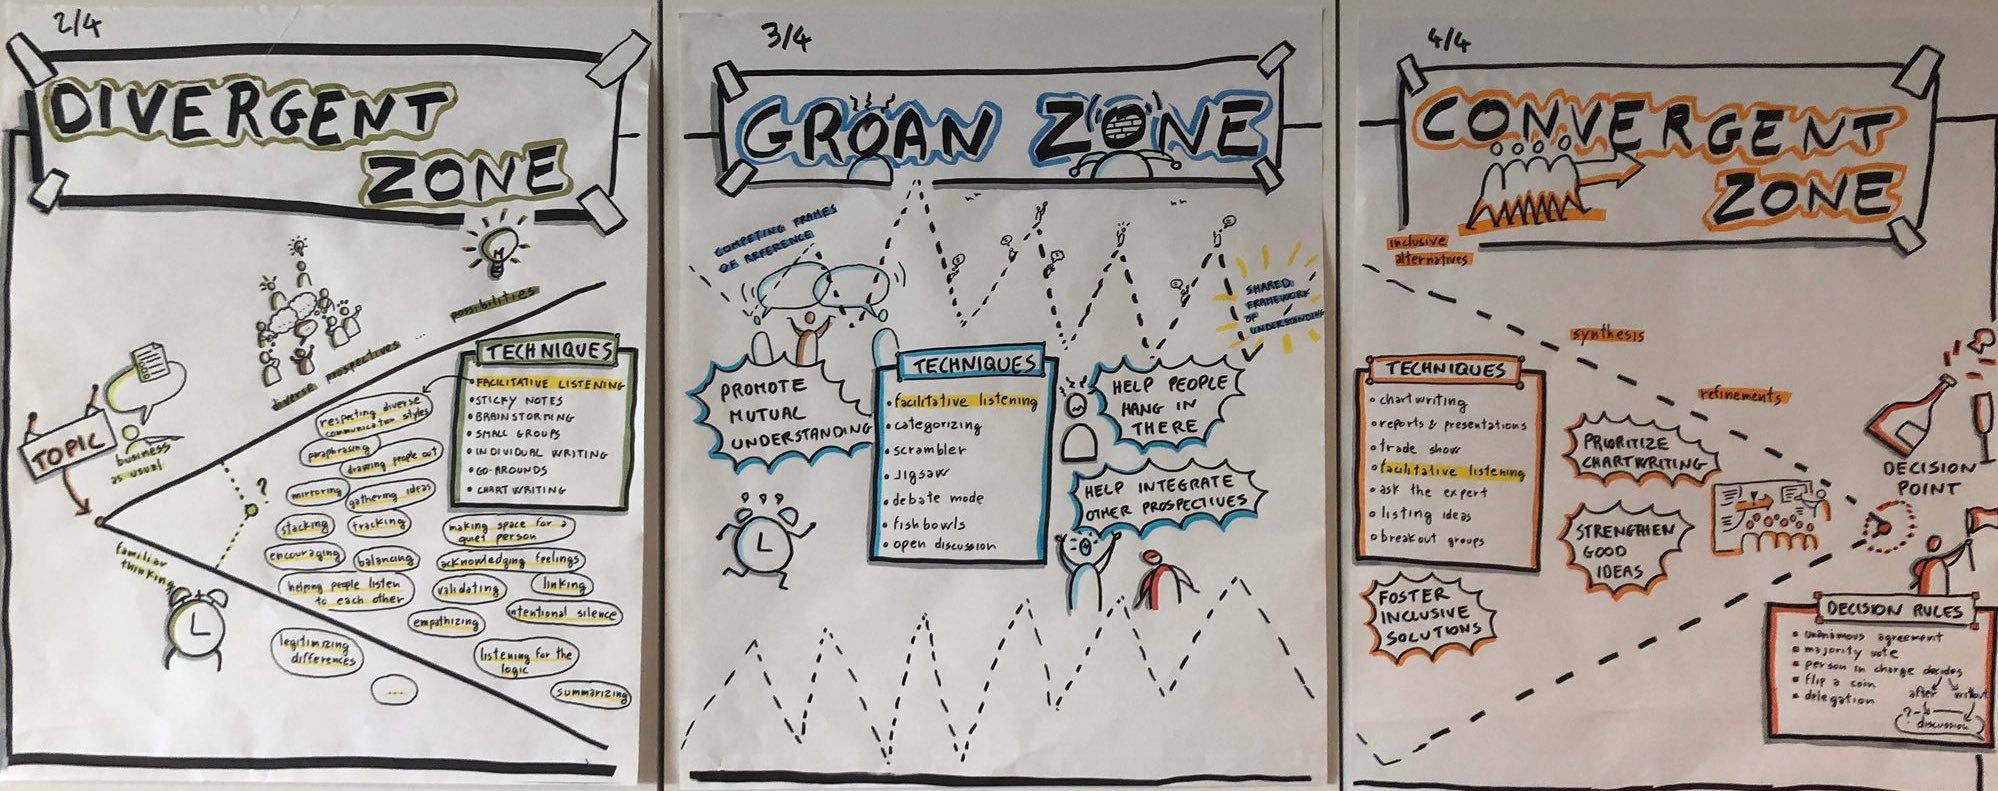 2/4
DIVERGENT
ZONE
possibilities
diverse prospectives ...
TOPIC
business
as usual
?
familiar
thinking
TECHNIQUES
FACILITATIVE LISTENING
• STICKY NOTES
• BRAINSTORMING
• SMALL GROUPS
• INDIVIDUAL WRITING
• GO-AROUNDS
• CHART WRITING
respecting diverse
communication styles
paraphrasing
drawing people out
mirroring
gathering ideas
stacking
tracking
making space for a
quiet person
encouraging
balancing
acknowledging feelings
helping people listen
to each other
validating
linking
intentional silence
empathizing
legitimizing
differences
listening for the
logic
...
summarizing
3/4
GROAN ZONE
COMPETING FRAMES
OF REFERENCE
SHARED
FRAMEWORK
OF
UNDERSTANDING
PROMOTE
MUTUAL
UNDERSTANDING
TECHNIQUES
• facilitative listening
• categorizing
• scrambler
• Jigsaw
• debate mode
• fishbowls
• open discussion
HELP PEOPLE
HANG IN
THERE
HELP INTEGRATE
OTHER PROSPECTIVES
4/4
CONVERGENT
ZONE
inclusive
alternatives
synthesis
refinements
TECHNIQUES
• chartwriting
• reports & presentations
• trade show
• facilitative listening
• ask the expert
• listing ideas
• breakout groups
PRIORITIZE
CHARTWRITING
STRENGTHEN
GOOD
IDEAS
FOSTER
INCLUSIVE
SOLUTIONS
DECISION
POINT
DECISION RULES
• unanimous agreement
• majority vote
• person in charge decides
• flip a coin
after without
• delegation
?
discussion